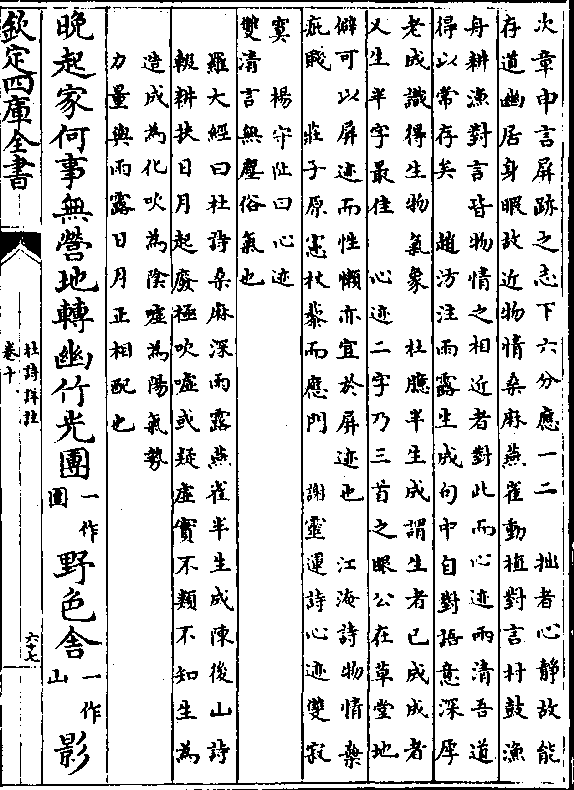 次章申言屏跡之志下六分應一二　拙者心靜故能
存道幽居身暇故近物情桑麻燕雀動植對言村鼓漁
舟耕漁對言皆物情之相近者對此而心迹兩清吾道
得以常存矣　趙汸注雨露生成句中自對語意深厚
老成識得生物氣象　杜臆半生成謂生者已成成者
又生半字最佳　心迹二字乃三首之眼公在草堂地
僻可以屏迹而性懶亦宜於屏迹也　江淹詩物情棄
疵賤　莊子原憲杖藜而應門　謝靈運詩心迹雙寂
寞　楊守阯曰心迹
雙清言無塵俗氣也
羅大經曰杜詩桑麻深雨露燕雀半生成陳後山詩
輟耕扶日月起廢極吹噓或疑虛實不類不知生為
造成為化吹為陰噓為陽氣勢
力量與雨露日月正相配也
晚起家何事無營地轉幽竹光團一作圓野色舍一作山影
欽定四庫全書
杜詩詳註
卷十
六十七